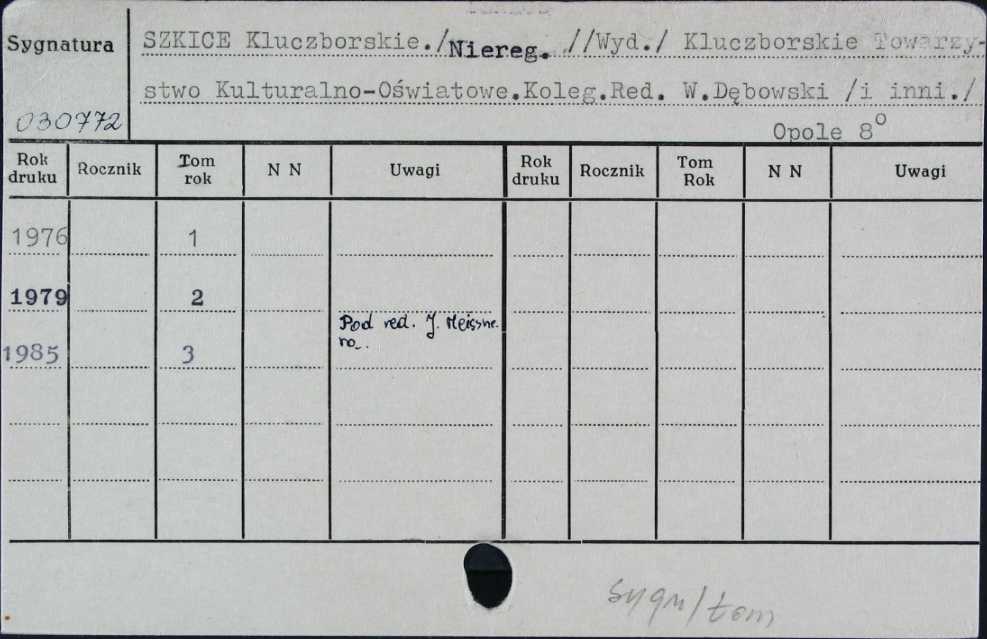 Sygnatura
SZKICE Kluczborskie./Niereg. //Wyd./ Kluczborskie Towarzy-
stwo Kulturalno-Oświatowe.Koleg.Red. W.Dębowski /i inni./
030772
Opole 8°
Rok druku Rocznik Tom rok N N Uwagi Rok druku Rocznik Tom Rok N N Uwagi
1976 1
1979 2
Pod red. J. Meissne.
ra.
1985 3
sygn/tom